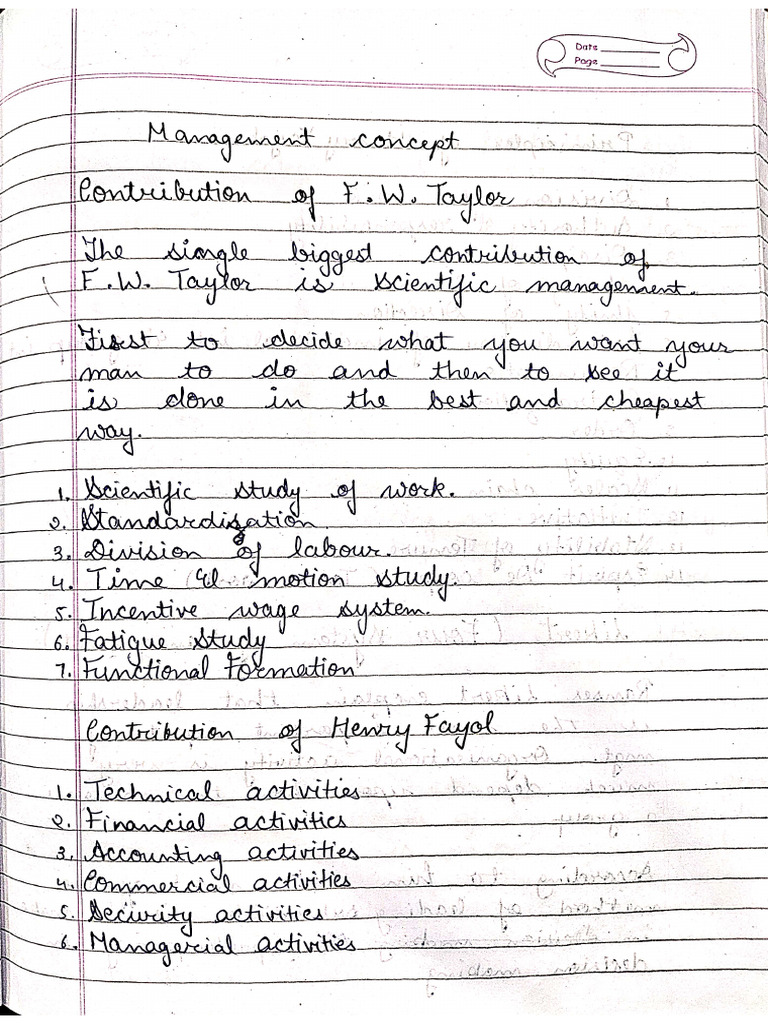 Date
Page
Management concept
Contribution of F.W. Taylor
The single biggest contribution of
F.W. Taylor is scientific management.
First to decide what you want your
man to do and then to see it
is done in the best and cheapest
way.
1. Scientific study of work.
2. Standardisation
3. Division of labour.
4. Time & motion study.
5. Incentive wage system.
6. Fatigue study
7. Functional Formation
Contribution of Henry Fayol
1. Technical activities
2. Financial activities
3. Accounting activities
4. Commercial activities
5. Security activities
6. Managerial activities